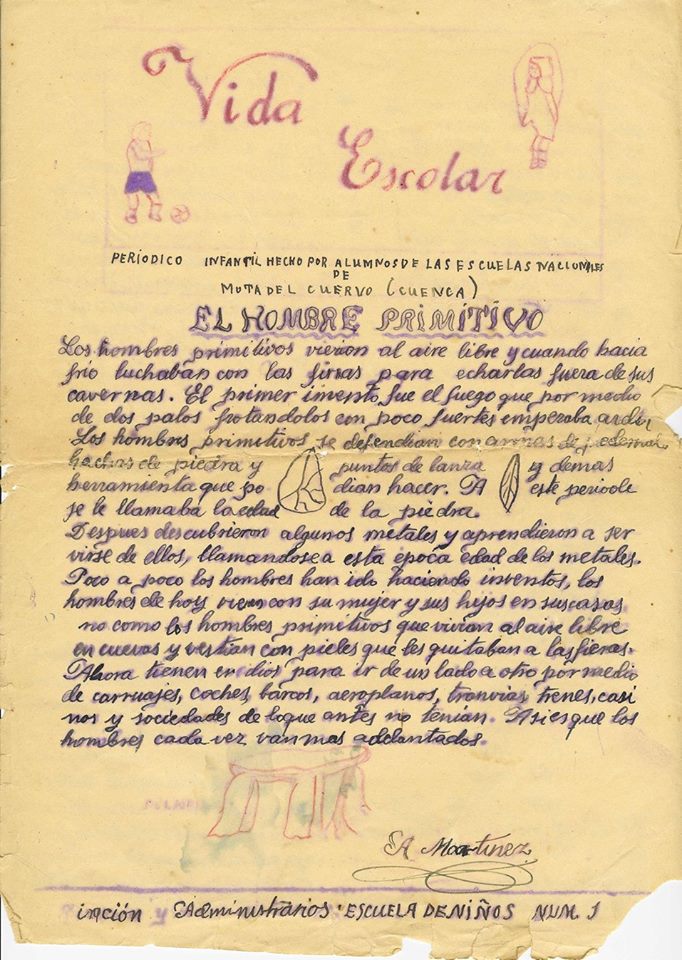 Vida
Escolar
PERIODICO INFANTIL HECHO POR ALUMNOS DE LAS ESCUELAS NACIONALES
DE
MOTA DEL CUERVO (CUENCA)
EL HOMBRE PRIMITIVO
Los hombres primitivos vieron al aire libre y cuando hacia
frio luchaban con las firras para echarlas fuera de sus
cavernas. El primer imento fue el fuego que por medio
de dos palos frotandolos con poco fuertes emperaba ardir
Los hombres primitivos se defendian con armas de
hachas de piedra y puntos de lanza y demas
herramienta que podian hacer. A este periode
se le llamaba la edad de la piedra.
Despues descubrieron algunos metales y aprendieron a ser
virse de ellos, llamandose a esta epoca edad de los metales.
Poco a poco los hombres han ido haciendo inventos, los
hombres de hoy viven con su mujer y sus hijos en sus casas
no como los hombres primitivos que vivian al aire libre
en cuevas y vestian con pieles que les quitaban a las fieras.
Ahora tienen dios para ir de un lado a otro por medio
de carruajes, coches, barcos, aeroplanos, tranvias trenes, casi
nos y sociedades de loque antes no tenian. Asi es que los
hombres cada vez van mas adelantados.
A Martinez
Administrarios · ESCUELA DE NIÑOS NUM. 1